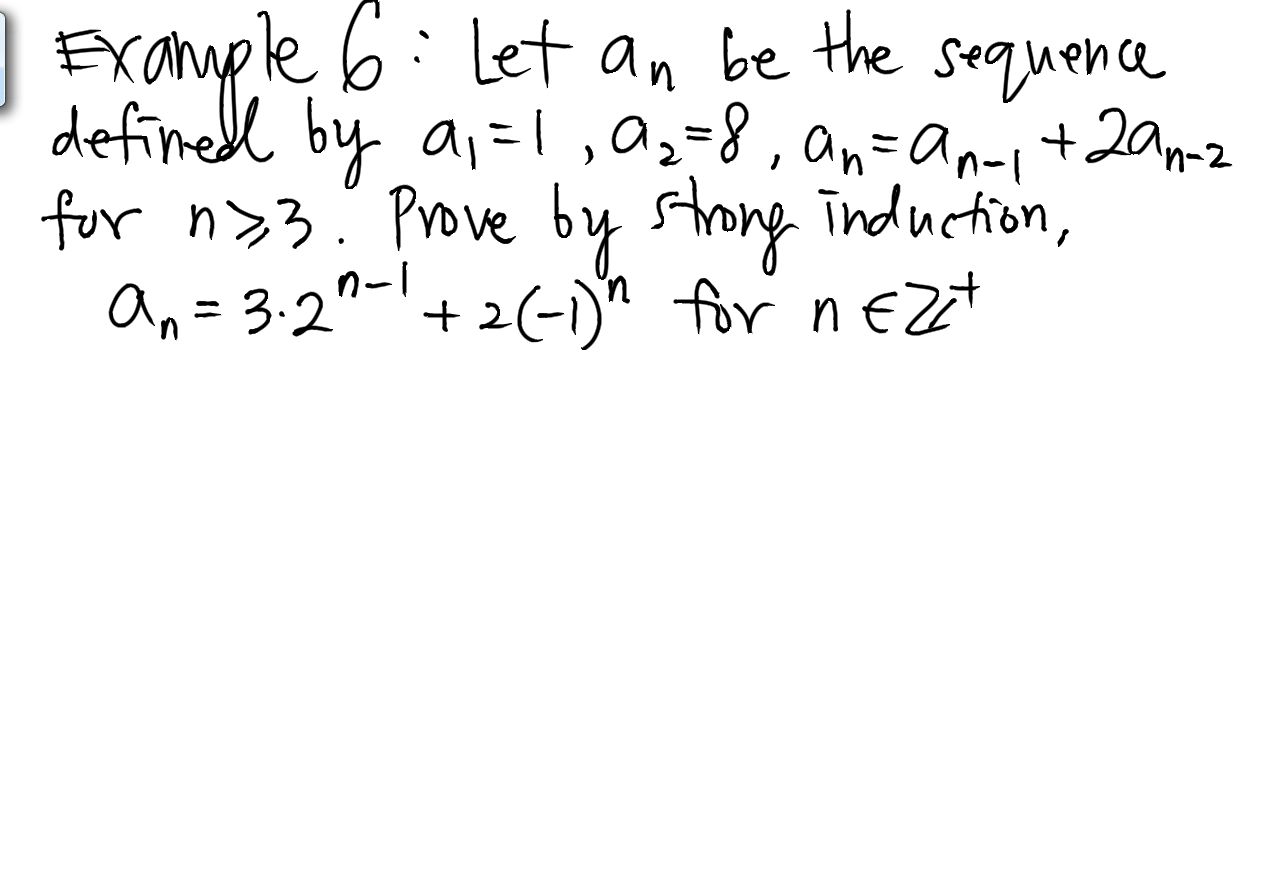 Example 6 : Let aₙ be the sequence
defined by a₁=1 , a₂=8 , aₙ=aₙ₋₁ +2aₙ₋₂
for n⩾3. Prove by strong induction,
aₙ = 3·2ⁿ⁻¹ + 2(-1)ⁿ for n ∈ ℤ⁺